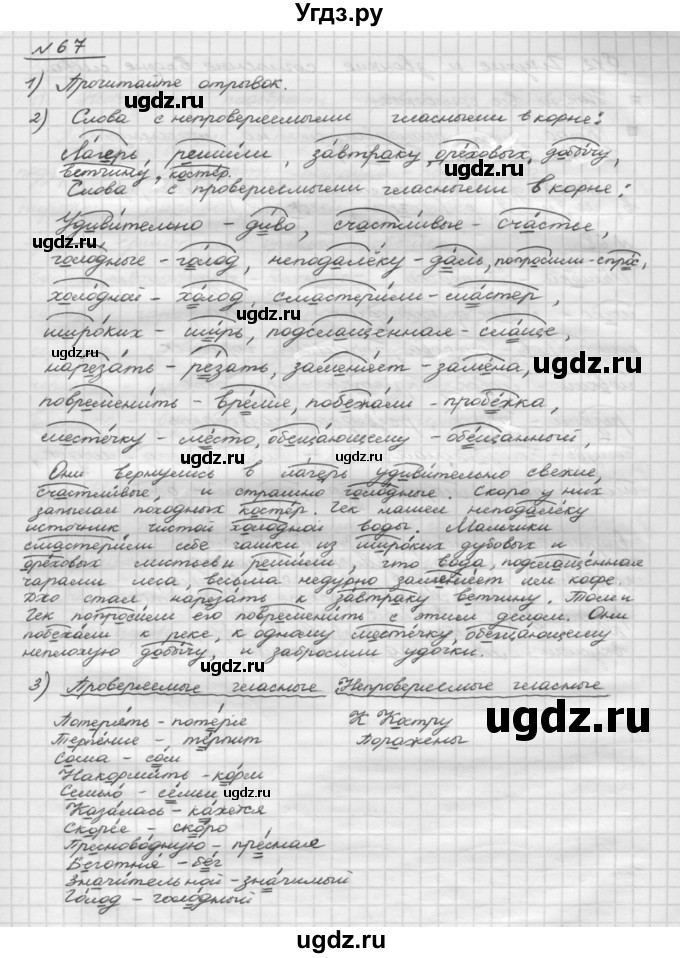 Угдз.ру
№67
1) Прочитайте отрывок.
ugdz.ru ugdz.ru
2) Слова с непроверяемыми гласными в корне:
Лагерь, решили, завтраку, ореховых, добычу,
ветчину, костёр.
Слова с проверяемыми гласными в корне:
Удивительно - диво, счастливые - счастье,
ugdz.ru
голодные - голод, неподалёку - даль, попросили - спрос,
холодной - холод, смастерили - мастер,
широких - ширь, подслащённая - слаще,
ugdz.ru ugdz.ru
нарезать - резать, заменяет - замена,
повременить - время, побежали - пробежка,
местечку - место, обещающему - обещанный,
ugdz.ru
Они вернулись в лагерь удивительно свежие,
счастливые, и страшно голодные. Скоро у них
запылал походных костёр. Гек нашел неподалёку
источник чистой холодной воды. Мальчики
смастерили себе чашки из широких дубовых и
ореховых листьев и решили, что вода, подслащённая
чарами леса, весьма недурно заменяет им кофе.
Джо стал нарезать к завтраку ветчину. Том и
Гек попросили его повременить с этим делом. Они
побежали к реке, к одному местечку, обещающему
неплохую добычу, и забросили удочки.
ugdz.ru
3) Проверяемые гласные Непроверяемые гласные
Потерять - потеря К Костру
Терпение - терпит Поражены
ugdz.ru ugdz.ru
Сома - сом
Накормить - корм
Семью - семьи
ugdz.ru
Казалась - кажется
Скорее - скоро
Пресноводную - пресная
ugdz.ru
Беготня - бег
Значительной - значимый
Голод - голодный
ugdz.ru